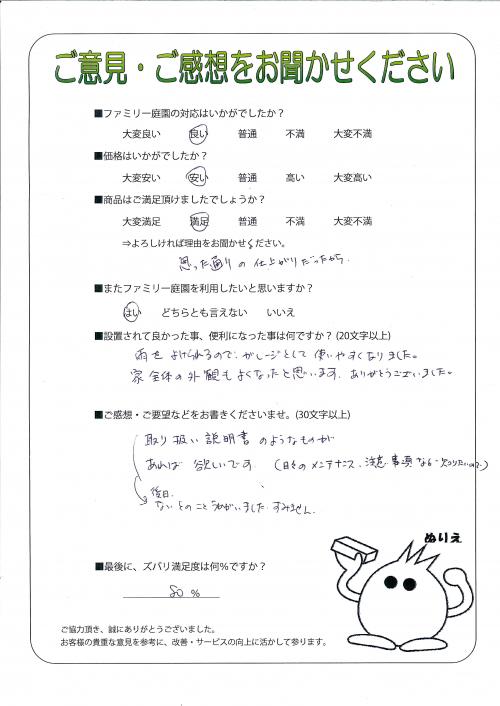 ご意見・ご感想をお聞かせください
■ファミリー庭園の対応はいかがでしたか?
大変良い 良い 普通 不満 大変不満
■価格はいかがでしたか?
大変安い 安い 普通 高い 大変高い
■商品はご満足頂けましたでしょうか?
大変満足 満足 普通 不満 大変不満
⇒よろしければ理由をお聞かせください。
思った通りの仕上がりだったから。
■またファミリー庭園を利用したいと思いますか?
はい どちらとも言えない いいえ
■設置されて良かった事、便利になった事は何ですか?(20文字以上)
雨をよけられるので、ガレージとして使いやすくなりました。
家全体の外観もよくなったと思います。ありがとうございました。
■ご感想・ご要望などをお書きくださいませ。(30文字以上)
取り扱い説明書のようなものが
あれば欲しいです (日々のメンテナンス、注意事項など知りたいので)
後日、
ないとのことうかがいました。すみません。
ぬりえ
■最後に、ズバリ満足度は何%ですか?
80 %
ご協力頂き、誠にありがとうございました。
お客様の貴重な意見を参考に、改善・サービスの向上に活かして参ります。